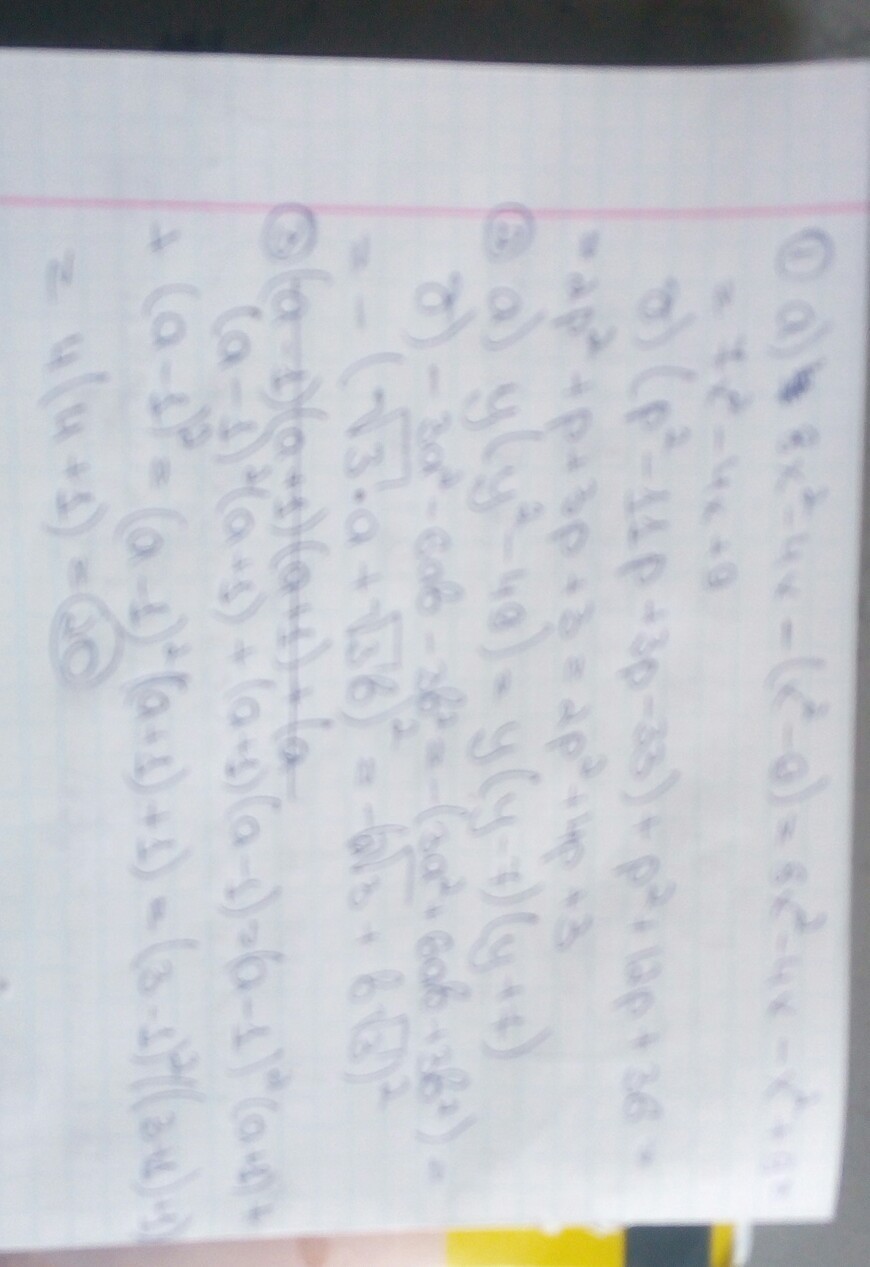 ① а) 8x² - 4x - (x² - 9) = 8x² - 4x - x² + 9 =
= 7x² - 4x + 9
б) (p² - 11p + 3p - 33) + p² + 12p + 36 =
= 2p² + p + 3p + 3 = 2p² + 4p + 3
② а) y(y² - 49) = y(y - 7)(y + 7)
б) - 3a² - 6ab - 3b² = -(3a² + 6ab + 3b²) =
= - (√3 · a + √3b)² = -(a√3 + b√3)²
③ (a - 1)(a + 1)(a + 1) + (a
(a - 1)²(a + 1) + (a + 1)(a - 1) = (a - 1)²(a + 1) +
+ (a - 1)² = (a - 1)²(a + 1) + 1) = (3 - 1)²((3 + 1) + 1)
= 4(4 + 1) = 20